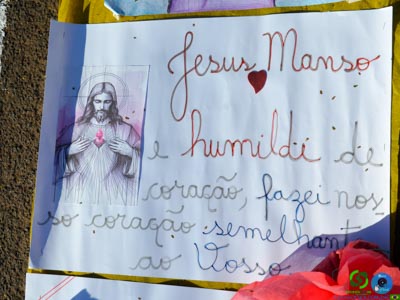 Jesus Manso
e humilde de
coração, fazei nos
so coração semelhant
ao Vosso